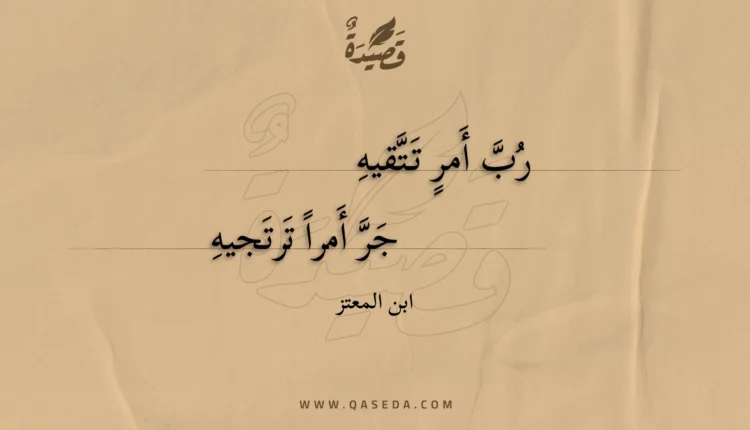 قَصِيْدَةٌ
رُبَّ أَمرٍ تَتَّقيهِ
جَرَّ أَمراً تَرتَجيهِ
ابن المعتز
WWW.QASEDA.COM